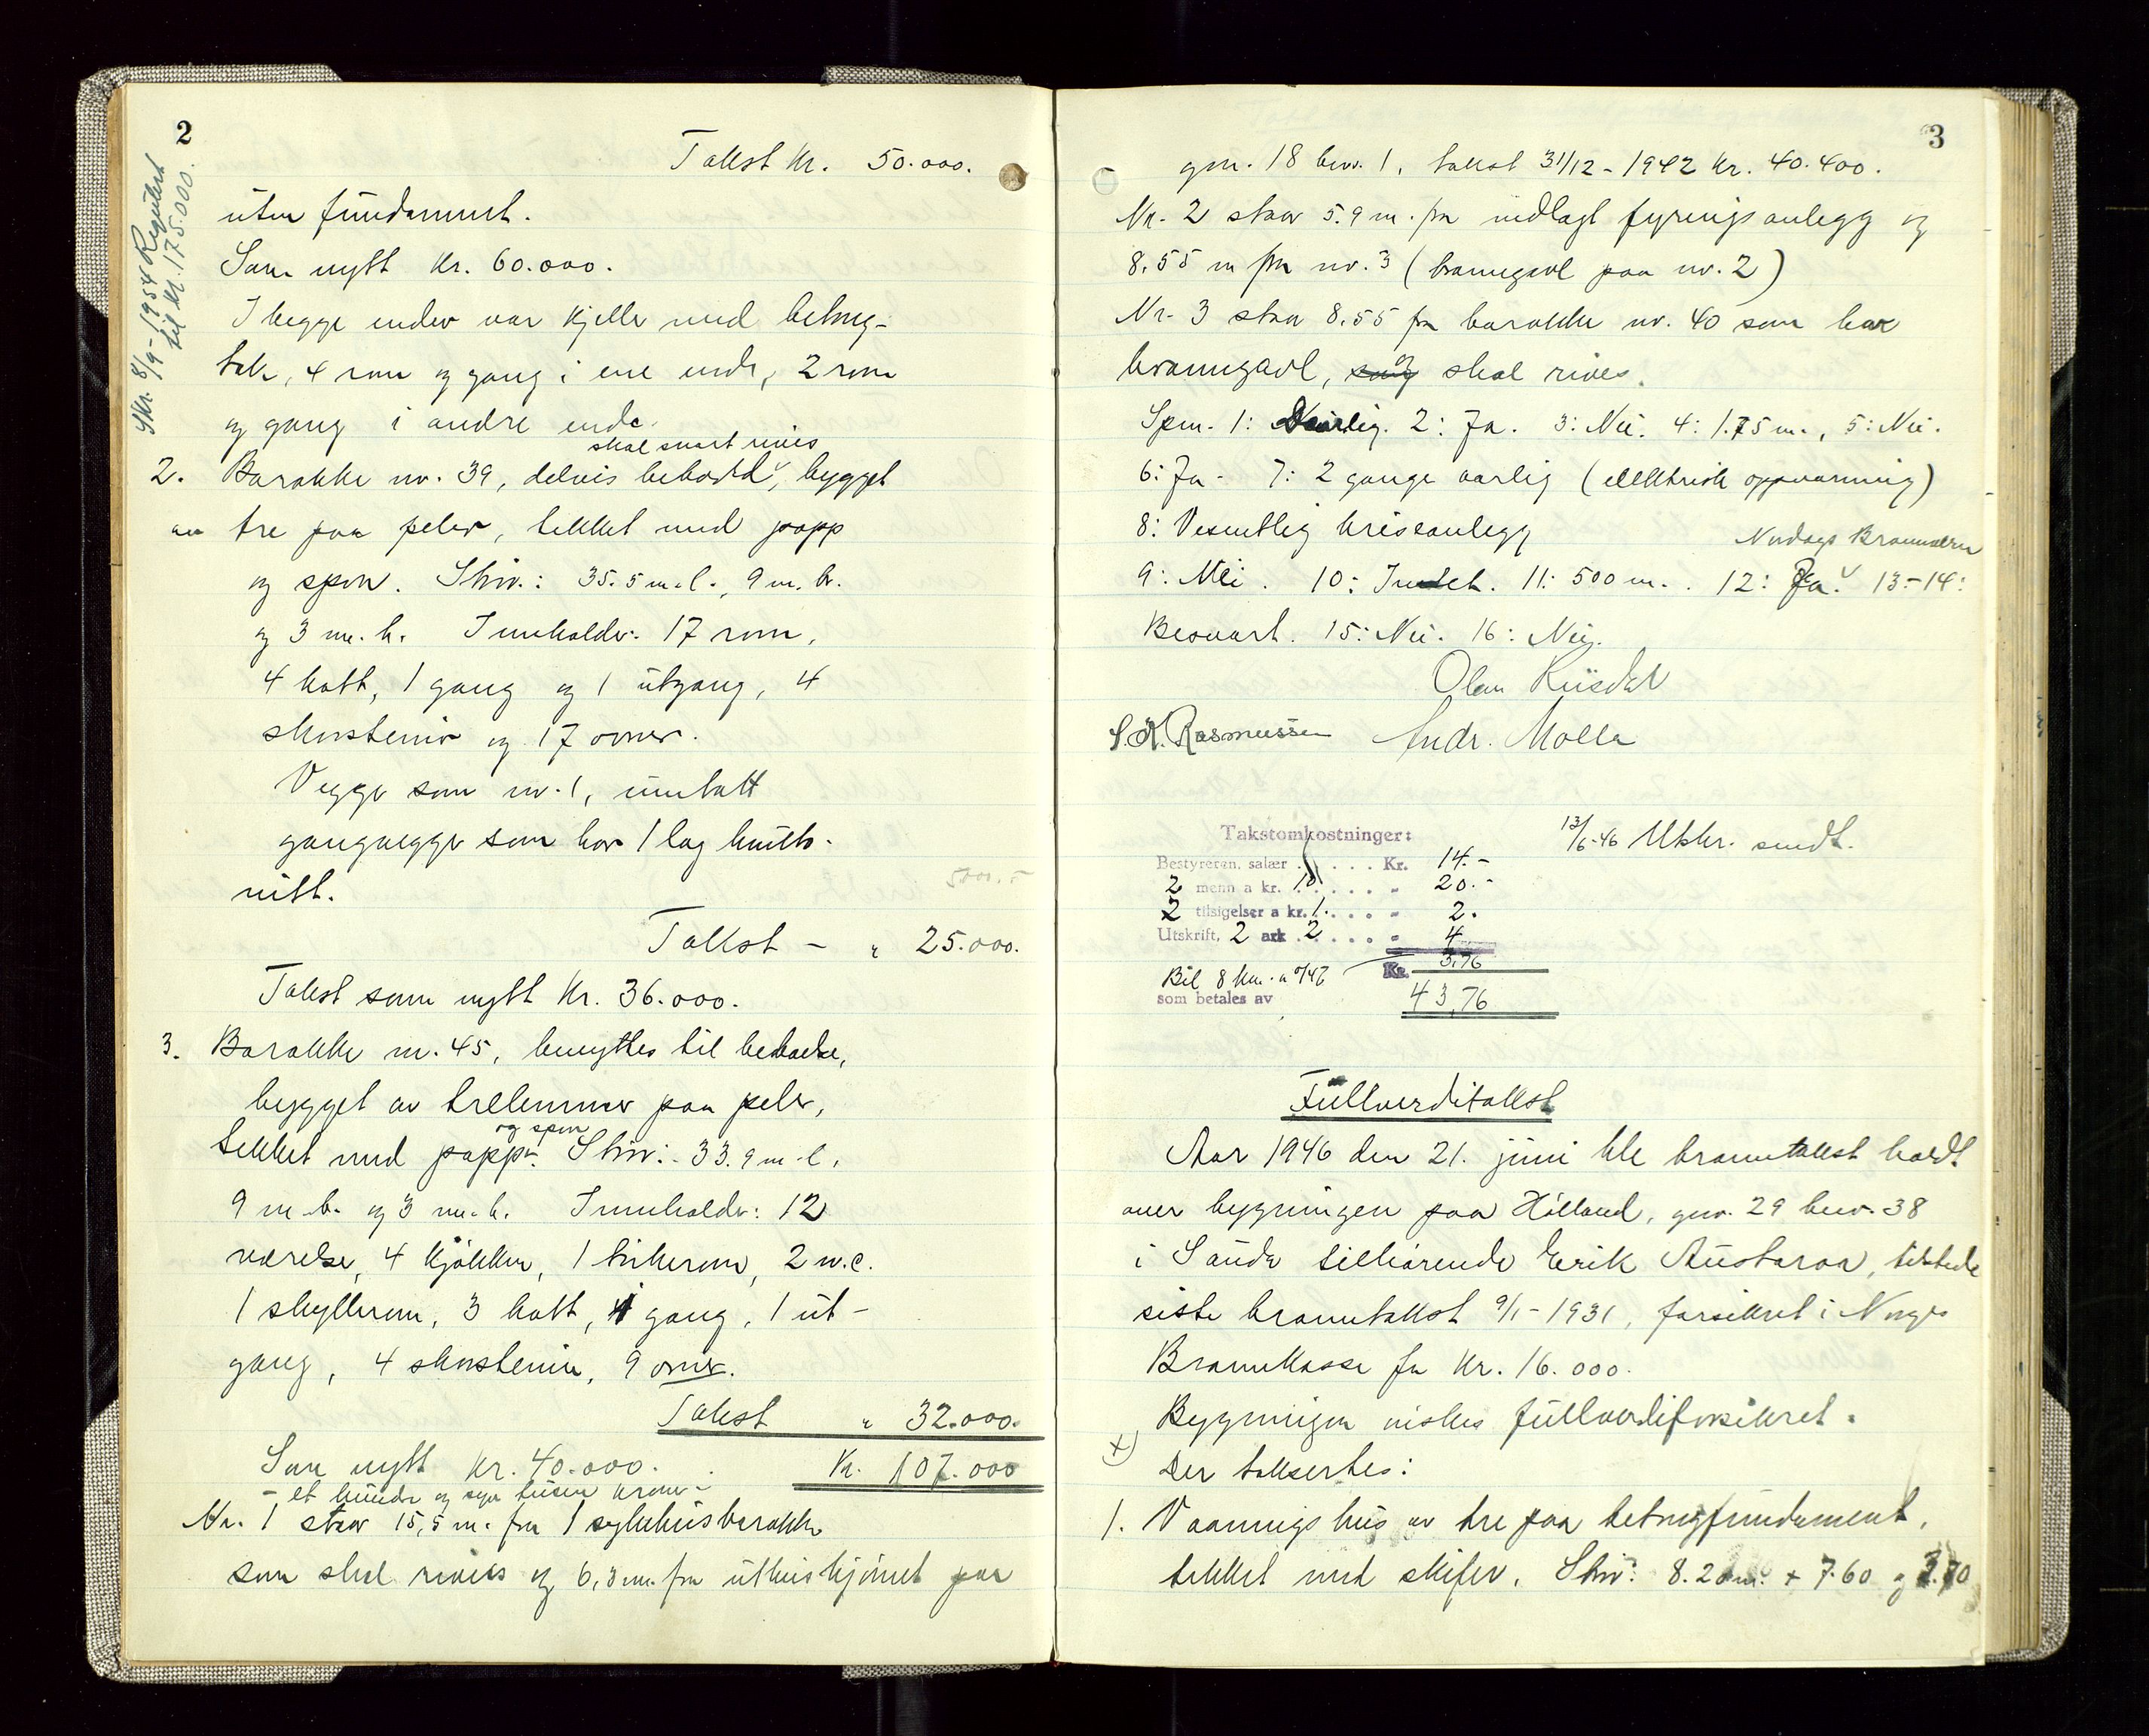 2
Skr. 8/9-1954 Regulert
til kr. 175.000.
Takst kr. 50.000.
uten fundament.
Som nytt kr. 60.000.
I begge ender var kjeller med betong-
tak, 4 rom og gang i ene ende, 2 rom
og gang i andre ende.
skal snart rives
2. Barakke nr. 39, delvis bebodd, bygget
av tre paa peler, tekket med papp
og spon. Stør.: 35.5 m. l., 9 m. br.
og 3 m. h. Inneholder: 17 rom,
4 kott, 1 gang og 1 utgang, 4
skorstener og 17 ovner.
Vegger som nr. 1, unntatt
gangvegger som har 1 lag hunto-
nitt.
Takst - " 25.000.
Takst som nytt kr. 36.000.
3. Barakke nr. 45, benyttes til beboelse,
bygget av trelemmer paa peler,
og spon
tekket med papp. Stør.: 33.9 m. l.
9 m. b. og 3 m. h. Inneholder: 12
værelser, 4 kjøkken, 1 tørkerom, 2 w.c.
1 skyllerom, 3 kott, 1 gang, 1 ut-
gang, 4 skorstener, 9 ovner.
Takst " 32.000.
Som nytt kr. 40.000.
Kr. 107.000
- et hundre og syv tusen kroner -
Nr. 1 staar 15,5 m. fra 1 sykehusbarakke
som skal rives og 6,3 m. fra uthus hjørnet paa
3
gnr. 18 bnr. 1, takst 31/12-1942 kr. 40.400.
Nr. 2 staar 5.9 m. fra nedlagt fyringsanlegg og
8.55 m fra nr. 3 (branngavl paa nr. 2)
Nr. 3 staar 8.55 fra barakke nr. 40 som har
branngavl, og skal rives.
Spm. 1: 2: Ja. 3: Nei. 4: 1.75 m., 5: Nei.
6: Ja - 7: 2 gange aarlig (elektrisk oppvarming)
8: Vesentlig krissanlegg
9: Nei. 10: Intet. 11: 500 m. 12: Ja. 13-14:
Besvart. 15: Nei. 16: Nei.
Olav Riisdal
S. K. Rasmussen Andr. Molla
Takstomkostninger:
Bestyreren, salær . . . . . Kr. 14.-
2 menn a kr. 10 . . . . . " 20.-
2 tilsigelser a kr. 1. . . . . " 2.
Utskrift, 2 ark 2 . . . . . " 4
Bil 8 km. a 0/47 Kr. 3.76
som betales av 43,76
13/6-46 Utskr. sendt.
Fullverditakst
Aar 1946 den 21. juni ble branntakst holdt
over bygningen paa Hølland, gnr. 29 bnr. 38
i Sauda tilhørende Erik Austaraa,
siste branntakst 9/1-1931, forsikret i Norges
Brannkasse for kr. 16.000.
Bygningen ønskes fullverdiforsikret.
+)
Der taksertes:
1. Vaaningshus av tre paa betongfundament,
tekket med skifer. Stør: 8.20 m. + 7.60 og